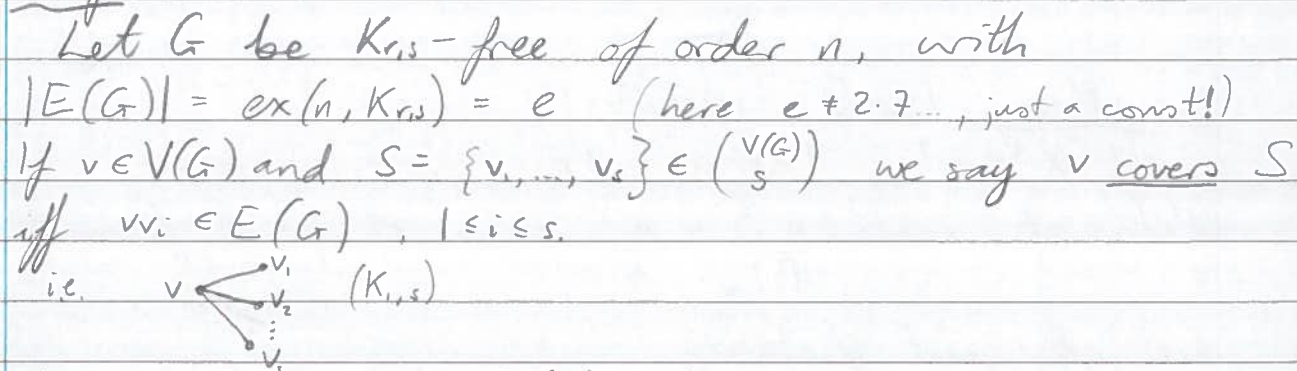 Let G be Kr,s-free of order n, with
|E(G)| = ex(n, Kr,s) = e (here e ≠ 2.7..., just a const!)
If v ∈ V(G) and S = {v₁, ..., vₛ} ∈ (V(G) s) we say v covers S
iff vvᵢ ∈ E(G), 1 ≤ i ≤ s.
i.e. v v₁ v₂ ⋮ (K₁,s)